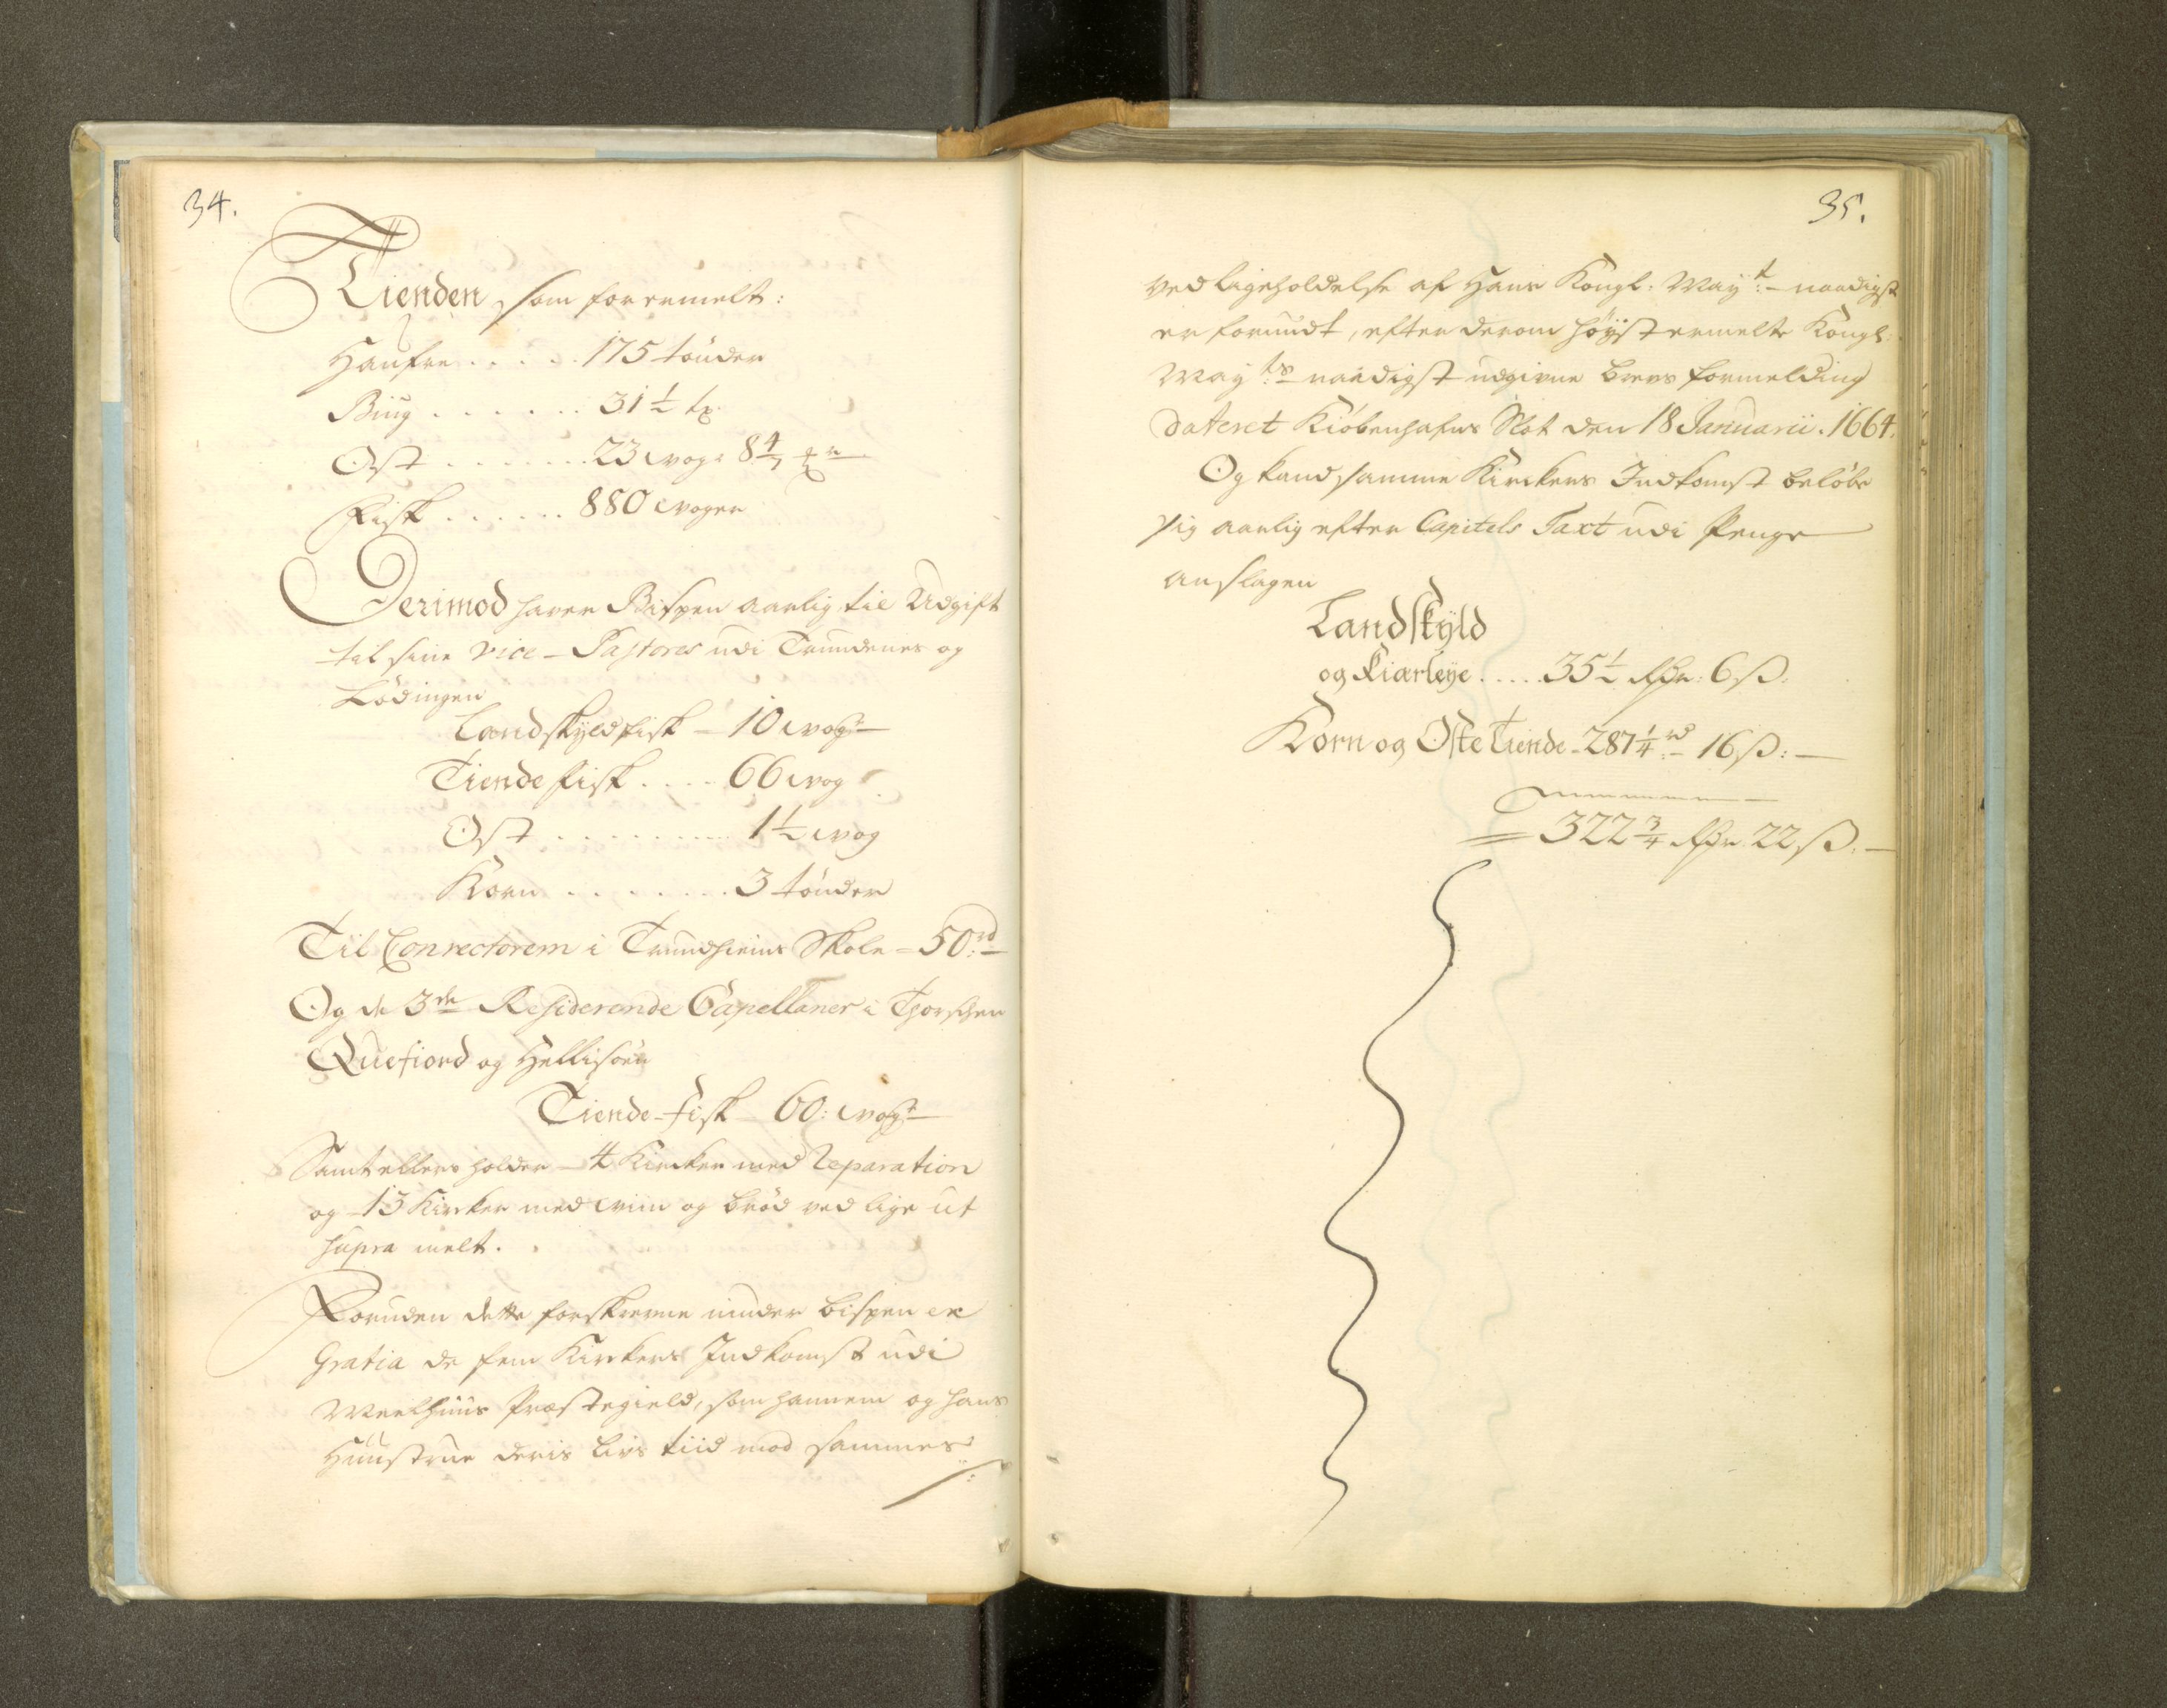 34.
Tienden som foremelt:
Haufre . . . . . 175 tønder
Biug . . . . . . 31½ tr.
Ost . . . . . . . 23 wog: 8
Fisk . . . . . . 880 woger
Derimod haver Bispen aarlig til Udgift
til siine vice-Pastores udi Trundenes og
Lødingen
Landskyld fisk - 10 wog:
Tiende fisk . . . . 66 wog
Ost . . . . . . . . . 1½ wog
Korn . . . . . . . . 3 tønder
Til Conrectorem i Trundhiems Skole - 50 rd:
Og de 3de Residerende Capellaner i
Quefiord og Hellisøen
Tiende-fisk 60: wog:
Samt ellers holder 4 Kircker med Reparation
og 13 Kircker med wiin og brød ved lige ut
supra melt.
Foruden dette forskrevne niuder bispen ex
Gratia de fem Kirckers Indkomst udi
Meelhuus Præstegield, som hannem og hans
Huustrue deris livs tiid mod sammes
35.
vedligeholdelse af Hans Kongl. Mayt:- naadigst
er forundt, efter derom høystermelte Kongl:
Mayts: naadigst udgivne brevs formelding
dateret Kiøbenhafns Slot den 18 Januarii. 1664.
Og kand samme Kirckers Indkomst beløbe
sig aarlig efter Capitels Taxt udi Penge
anslagen
Landskyld
og Kiørleye . . . . . 35½ Rdr: 6 ß.
Korn og Oste Tiende - 287¼ rd:- 16 ß:-
= 322¾ Rdr. 22 ß.-